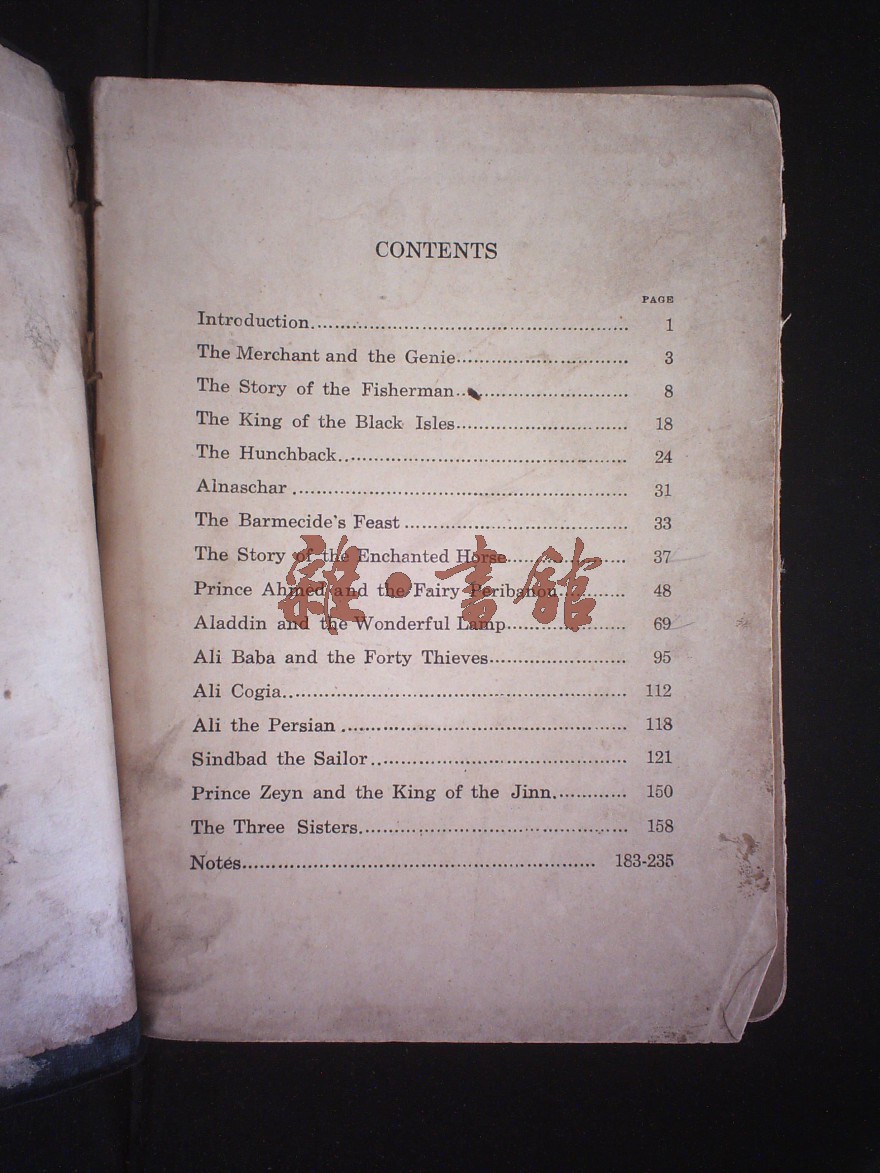 CONTENTS
PAGE
Introduction 1
The Merchant and the Genie 3
The Story of the Fisherman 8
The King of the Black Isles 18
The Hunchback 24
Alnaschar 31
The Barmecide's Feast 33
The Story of the Enchanted Horse 37
Prince Ahmed and the Fairy Peribanou 48
Aladdin and the Wonderful Lamp 69
Ali Baba and the Forty Thieves 95
Ali Cogia 112
Ali the Persian 118
Sindbad the Sailor 121
Prince Zeyn and the King of the Jinn 150
The Three Sisters 158
Notes 183-235
雜·書館